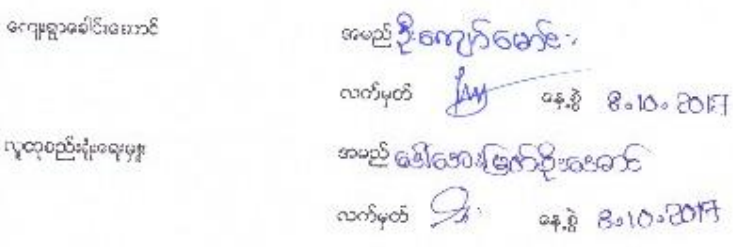 ကျေးရွာခေါင်းဆောင် အမည် ဦးကျော်မောင်း
လက်မှတ် နေ့စွဲ 8.10.2017
လူထုစည်းရုံးရေးမှူး အမည် ဒေါ်အေးမြတ်ဦးဆောင်
လက်မှတ် နေ့စွဲ 8.10.2017